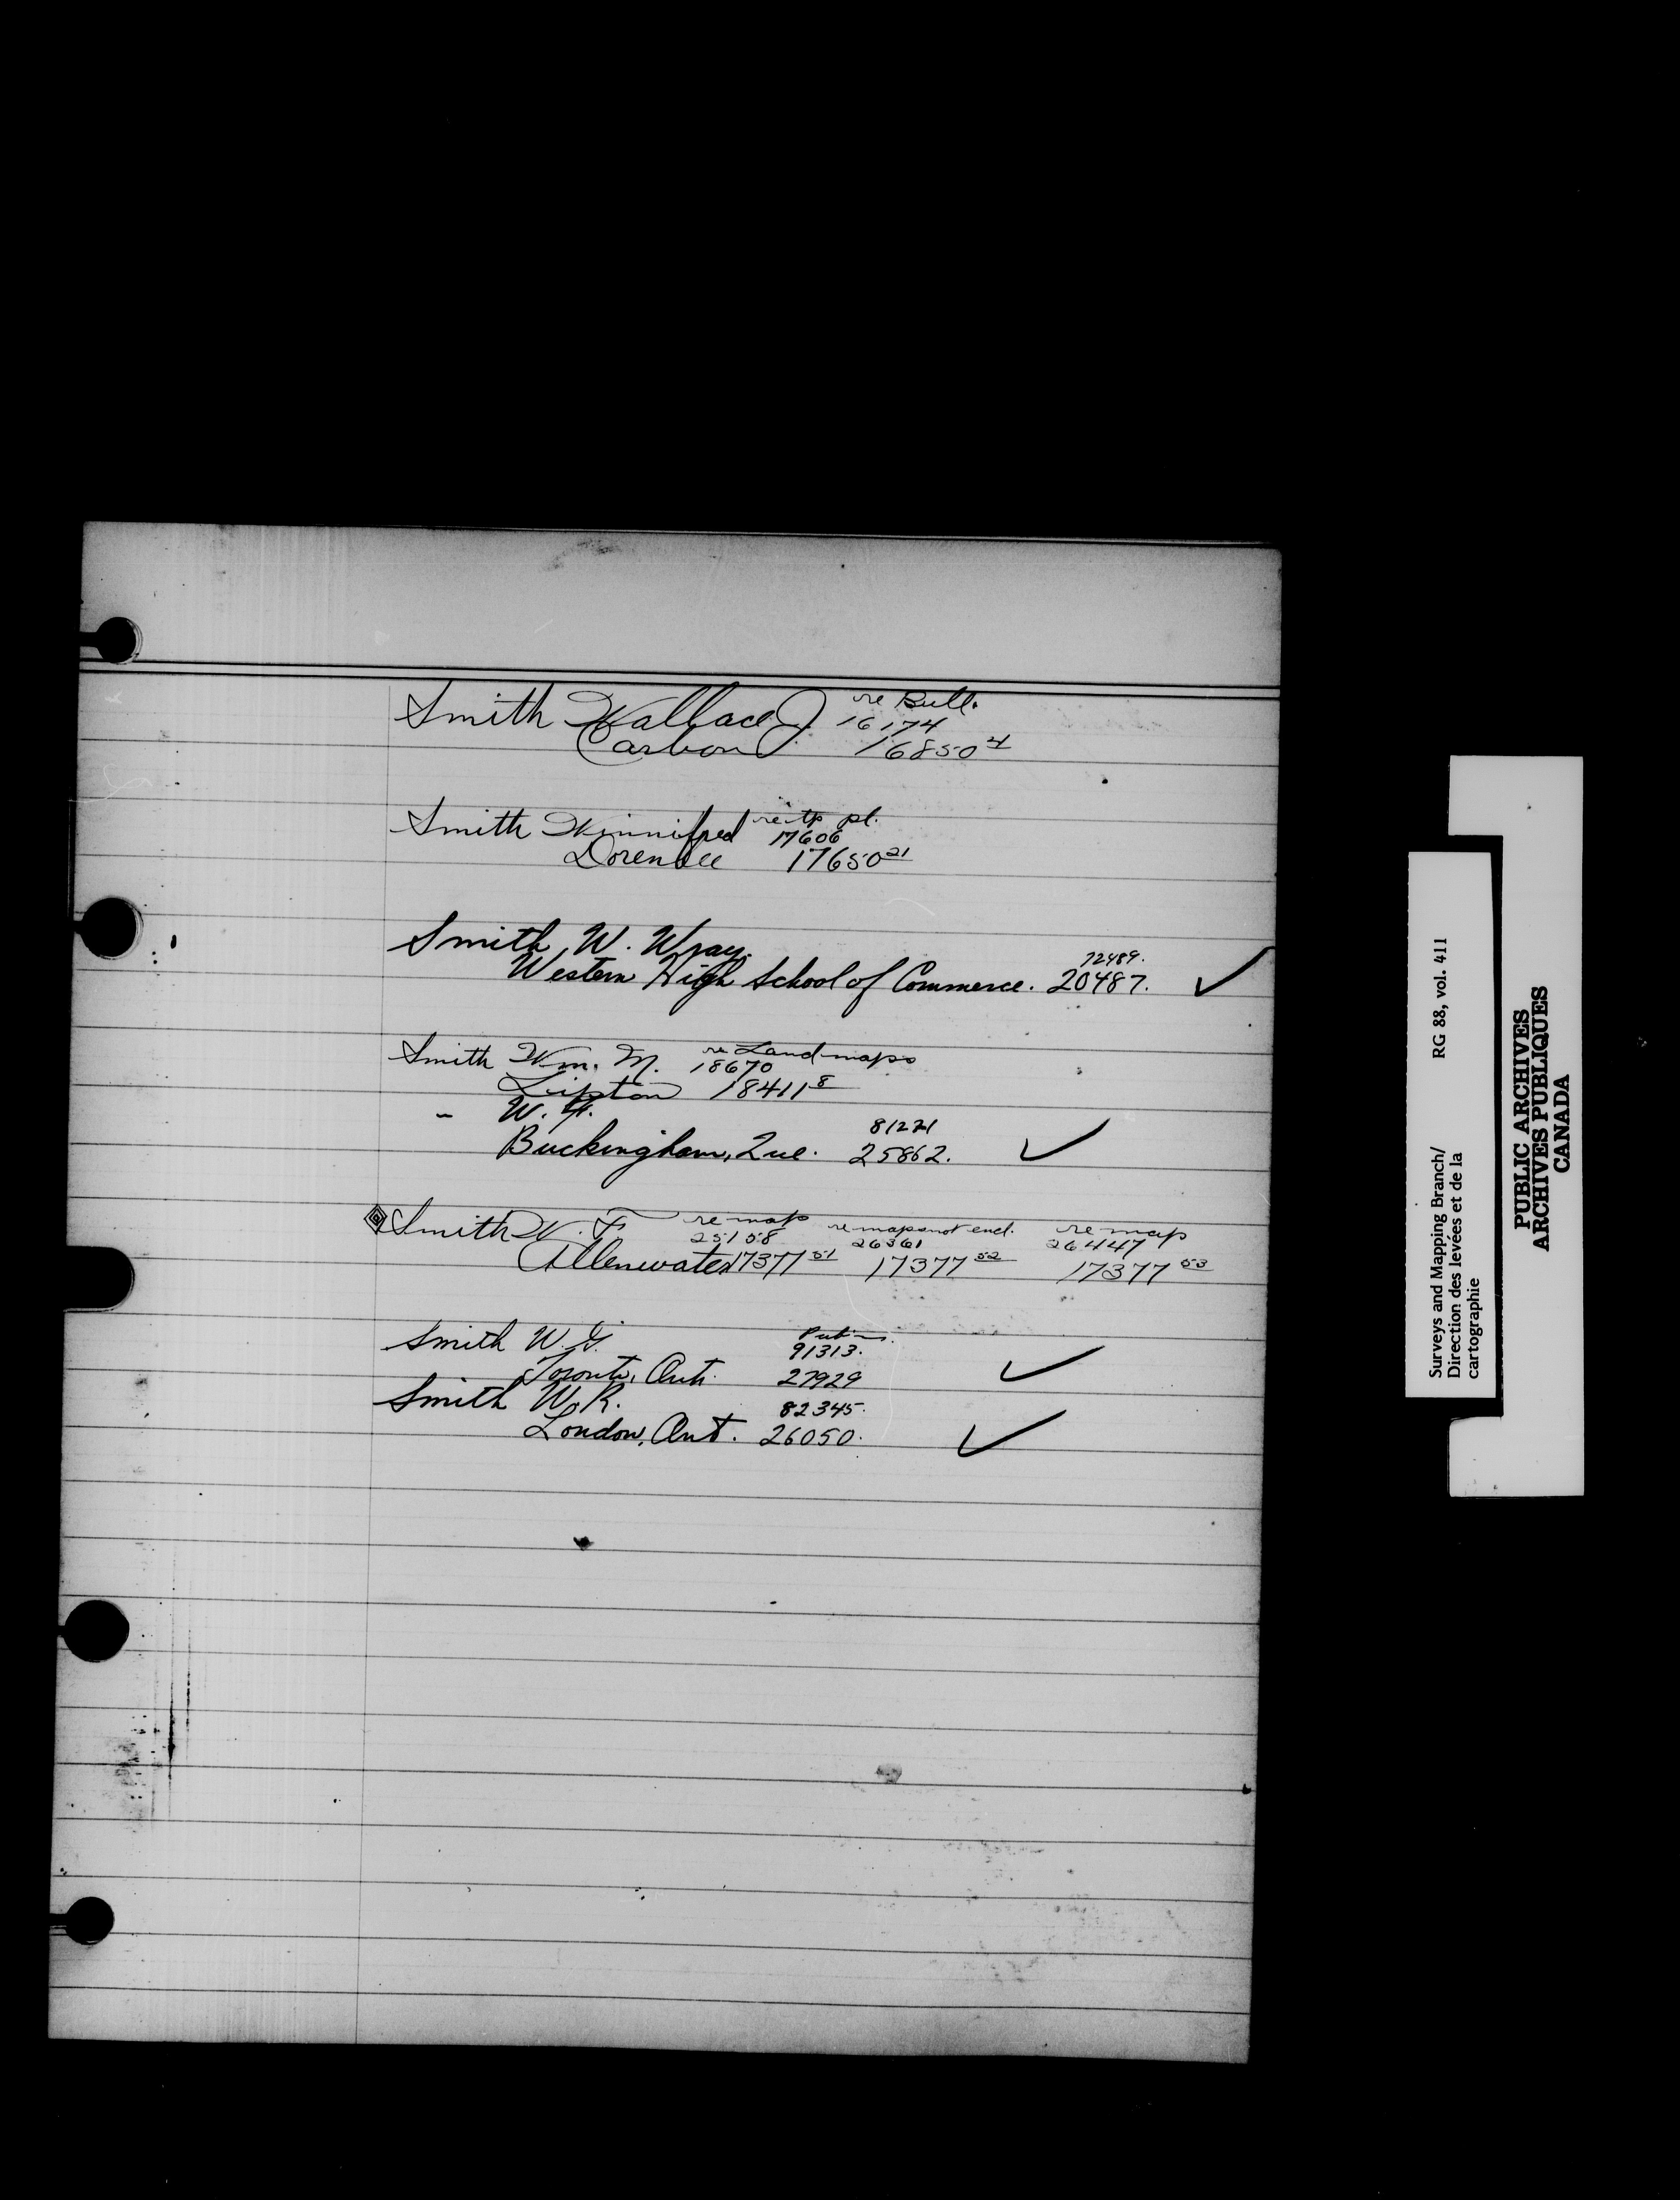 Smith Wallace J. re Bull.
16174
Carbon 16850 4
Smith Winnifred re tp pl.
17606
Dorenlee 17650 21
Smith, W. Wray.
72489.
Western High School of Commerce. 20487. ✓
Smith Wm. M. re Land maps
18670
Lipton 18411 8
" W. F.
81221
Buckingham, Que. 25862. ✓
Smith W. F. re map re maps not encl. re map
25158 26361 26447
Allenwater 17377 51 17377 52 17377 53
Smith W. G.
91313.
Toronto, Ont. 27929 ✓
Smith W. R. 82345.
London, Ont. 26050. ✓
Surveys and Mapping Branch/ RG 88, vol. 411
Direction des levées et de la
cartographie
PUBLIC ARCHIVES
ARCHIVES PUBLIQUES
CANADA